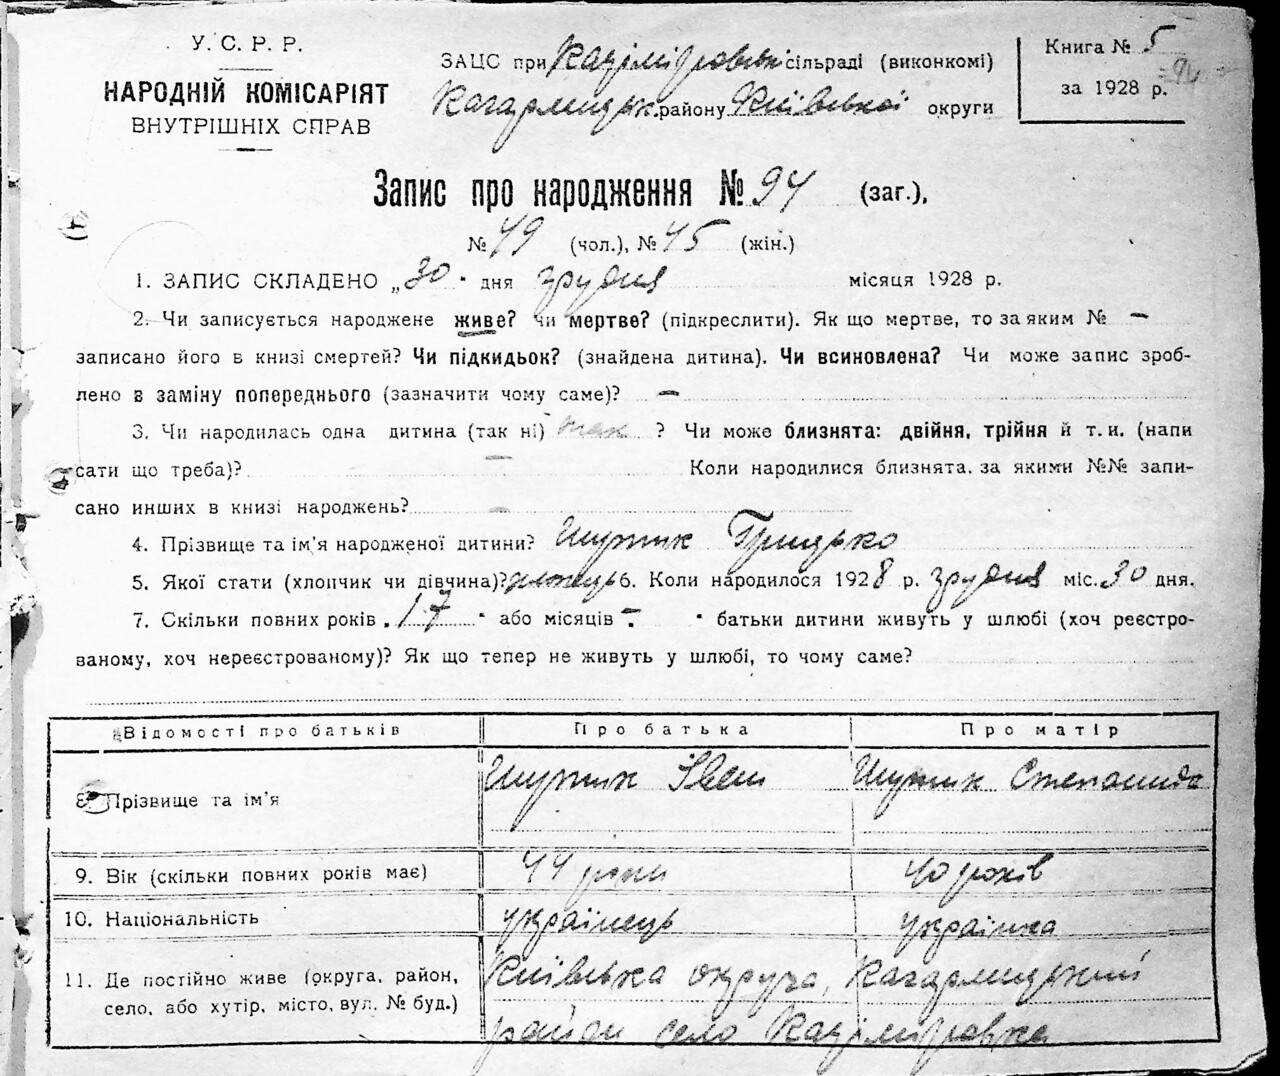 У. С. Р. Р.
НАРОДНІЙ КОМІСАРІЯТ
ВНУТРІШНІХ СПРАВ
ЗАЦС при Казіміровськ сільраді (виконкомі)
Кагарлицьк. району Київської округи
Книга № 5
за 1928 р.
94
Запис про народження № 94 (заг.),
№ 49 (чол.), № 45 (жін.)
1. ЗАПИС СКЛАДЕНО „30" дня грудня місяця 1928 р.
2. Чи записується народжене живе? чи мертве? (підкреслити). Як що мертве, то за яким № —
записано його в книзі смертей? Чи підкидьок? (знайдена дитина). Чи всиновлена? Чи може запис зроб-
лено в заміну попереднього (зазначити чому саме)? —
3. Чи народилась одна дитина (так ні) так ? Чи може близнята: двійня, трійня й т. и. (напи
сати що треба)? — Коли народилися близнята, за якими №№ запи-
сано инших в книзі народжень? —
4. Прізвище та ім'я народженої дитини? Шутик Грицько
5. Якої стати (хлопчик чи дівчина)? 6. Коли народилося 1928 р. грудня міс. 30 дня.
7. Скільки повних років 17 " або місяців - " батьки дитини живуть у шлюбі (хоч реєстро-
ваному, хоч нереєстрованому)? Як що тепер не живуть у шлюбі, то чому саме?
Відомості про батьків Про батька Про матір
8. Прізвище та ім'я Шутик Іван Шутик Степанида
9. Вік (скільки повних років має) 44 роки 40 років
10. Національність українець українка
11. Де постійно живе (округа, район, Київська округа, Кагарлицький
село, або хутір, місто, вул. № буд.) район село Казіміровка